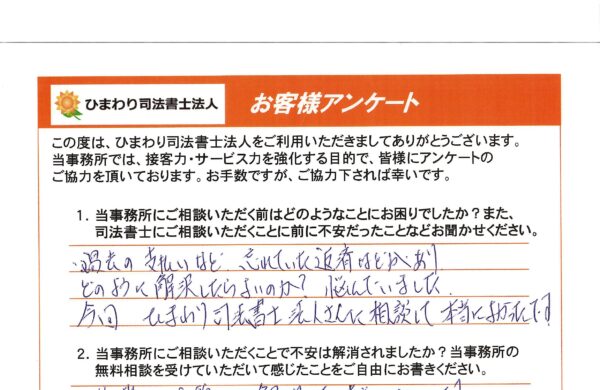 ひまわり司法書士法人
お客様アンケート
この度は、ひまわり司法書士法人をご利用いただきましてありがとうございます。
当事務所では、接客力・サービス力を強化する目的で、皆様にアンケートの
ご協力を頂いております。お手数ですが、ご協力下されば幸いです。
1. 当事務所にご相談いただく前はどのようなことにお困りでしたか?また、
司法書士にご相談いただくことに前に不安だったことなどお聞かせください。
・過去の支払いなど 忘れていた返済などがあり
どのように解決したらよいのか? 悩んでいました。
今回 ひまわり司法書士法人さんに相談して 本当によかったです!
2. 当事務所にご相談いただくことで不安は解消されましたか?当事務所の
無料相談を受けていただいて感じたことをご自由にお書きください。